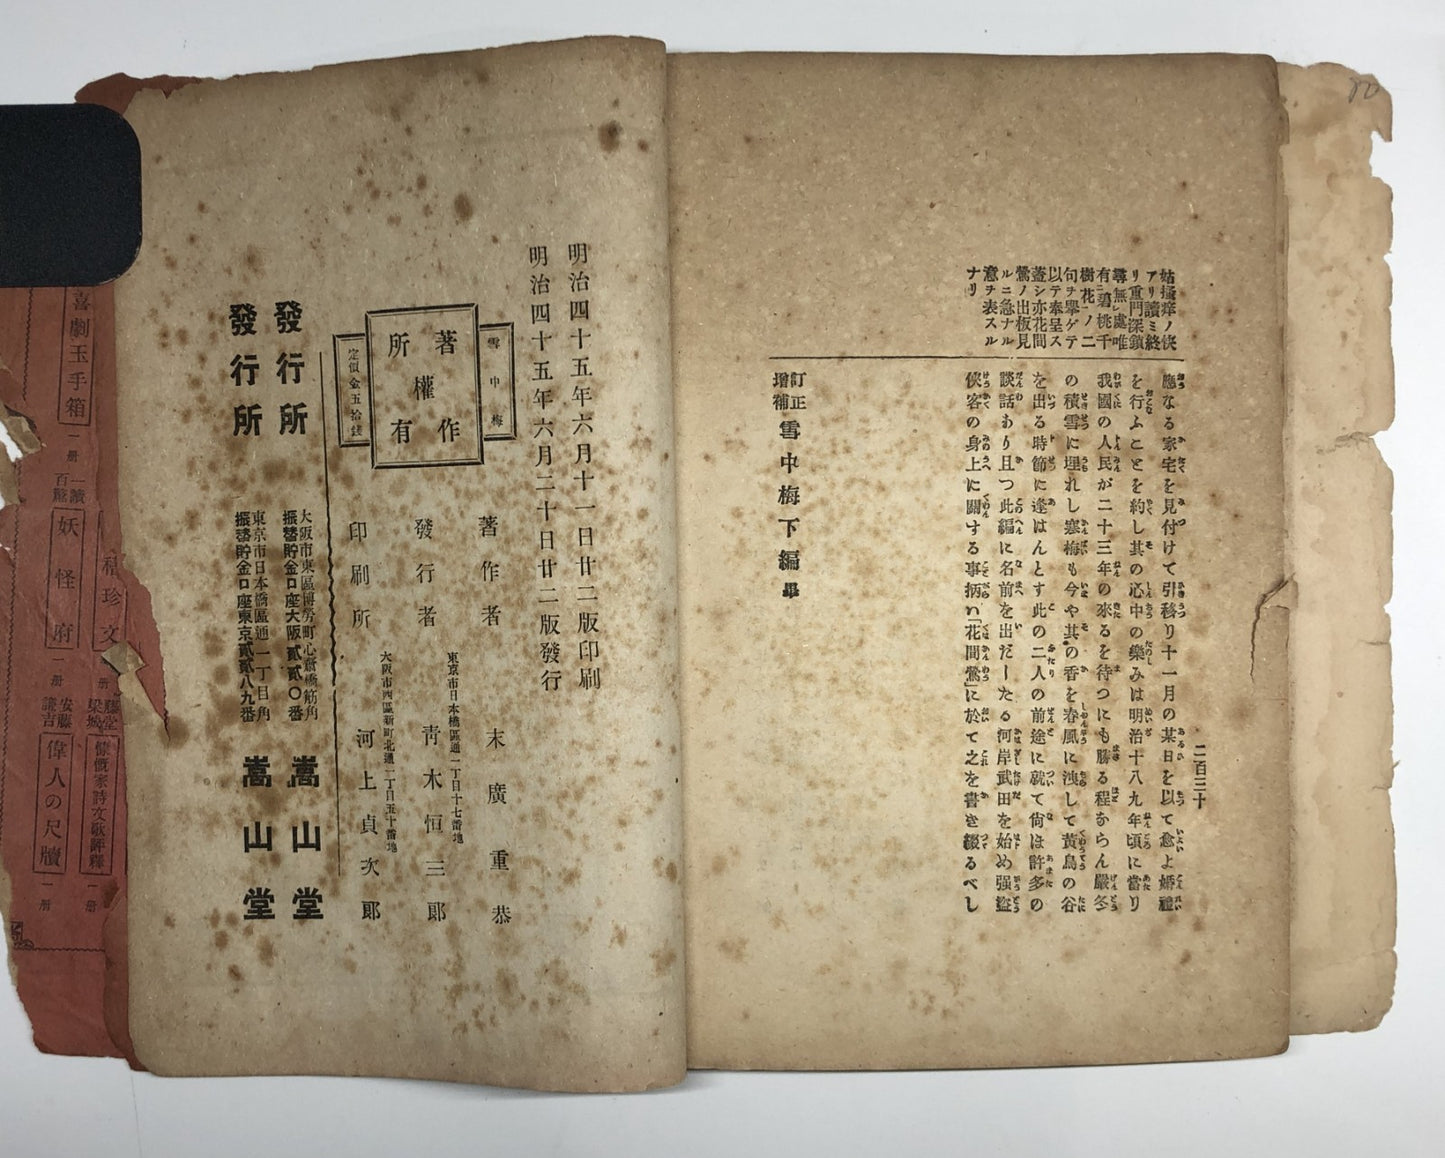 二百三十
姑搔痒ノ快
アリ讀ミ終
リ重門深鎖
尋無レ處唯
有ニ碧桃千
樹花一ノ二
句ヲ擧ゲテ
以テ奉呈ス
蓋シ亦花間
鶯ノ出板見
ルニ急ナル
意ヲ表スル
ナリ
應なる家宅を見付けて引移り十一月の某日を以て愈よ婚禮
を行ふことを約し其の心中の樂みは明治十八九年頃に當り
我國の人民が二十三年の來るを待つにも勝る程ならん嚴冬
の積雪に埋れし寒梅も今や其の香を春風に洩して黃鳥の谷
を出る時節に逢はんとす此の二人の前途に就て尙は許多の
談話あり且つ此編に名前を出だしたる河岸武田を始め强盜
俠客の身上に關する事柄ハ「花間鶯」に於て之を書き綴るべし
訂正
增補雪中梅下編畢
明治四十五年六月十一日廿二版印刷
明治四十五年六月二十日廿二版發行
雪中梅
著作
權
所有
定價金五拾錢
著作者 末廣重恭
東京市日本橋區通一丁目十七番地
發行者 靑木恒三郞
大阪市西區新町北通一丁目五十番地
印刷所 河上貞次郞
大阪市東區博勞町心齋橋筋角
發行所 嵩山堂
振替貯金口座大阪貳貳〇番
東京市日本橋區通一丁目角
發行所 嵩山堂
振替貯金口座東京貳貳八九番
珍文
一册
藤堂
梁城
慷慨家詩文歌詳釋
一册
喜劇玉手箱
一册
一讀
百驚
妖怪府
一册
安藤
謙吉
偉人の尺牘
一册